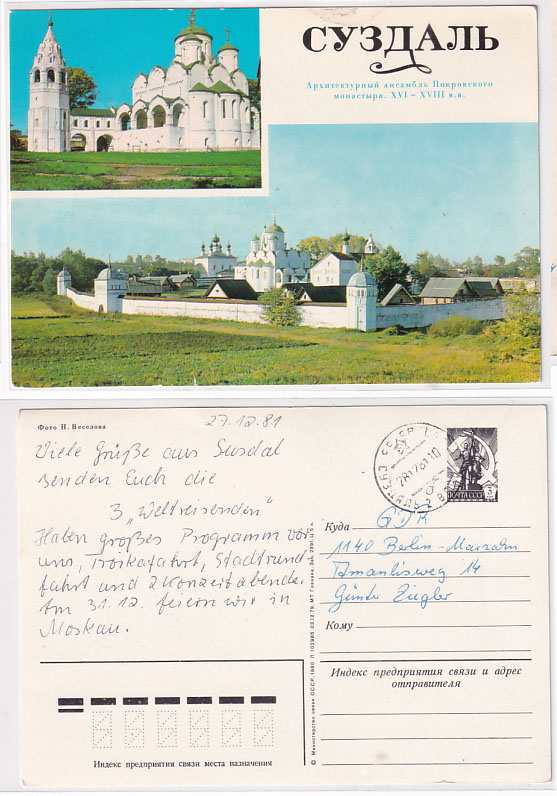 СУЗДАЛЬ
Архитектурный ансамбль Покровского
монастыря. XVI – XVIII в.в.
Фото Н. Веселова
27.12.81
Viele Grüße aus Susdal
senden Euch die
3 „Weltreisenden"
Haben großes Programm vor
uns, Troikafahrt, Stadtrund
fahrt und 2 Konzertabende.
Am 31.12. feiern wir in
Moskau.
ПОЧТА СССР
Куда
GDR
1140 Berlin-Marzahn
Amanlisweg 14
Günter Ziegler
Кому
Индекс предприятия связи и адрес
отправителя
Индекс предприятия связи места назначения
© Министерство связи СССР, 1980